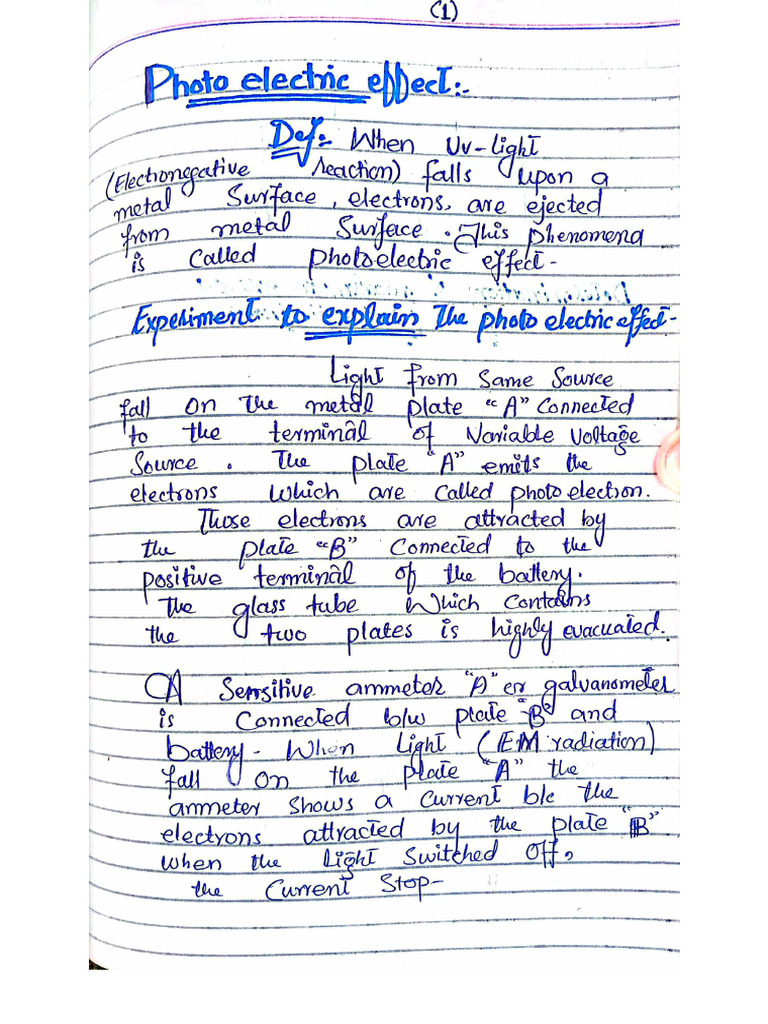 (1)
Photo electric effect:-
Def:- When Uv-light
(Electronegative reaction) falls upon a
metal Surface, electrons, are ejected
from metal Surface. This phenomena
is Called photoelectric effect-
Experiment to explain The photo electric effect-
Light from Same Source
fall on the metal plate "A" Connected
to the terminal of Variable Voltage
Source. The plate "A" emits the
electrons Which are Called photo electron.
Those electrons are attracted by
the plate "B" Connected to the
positive terminal of the battery.
The glass tube Which Contains
the two plates is highly evacuated.
A Sensitive ammeter "A" or galvanometer
is Connected b/w plate "B" and
battery- When Light (EM radiation)
fall on the plate "A" the
ammeter Shows a Current b/c the
electrons attracted by the plate "B"
when the Light Switched Off,
the Current Stop-